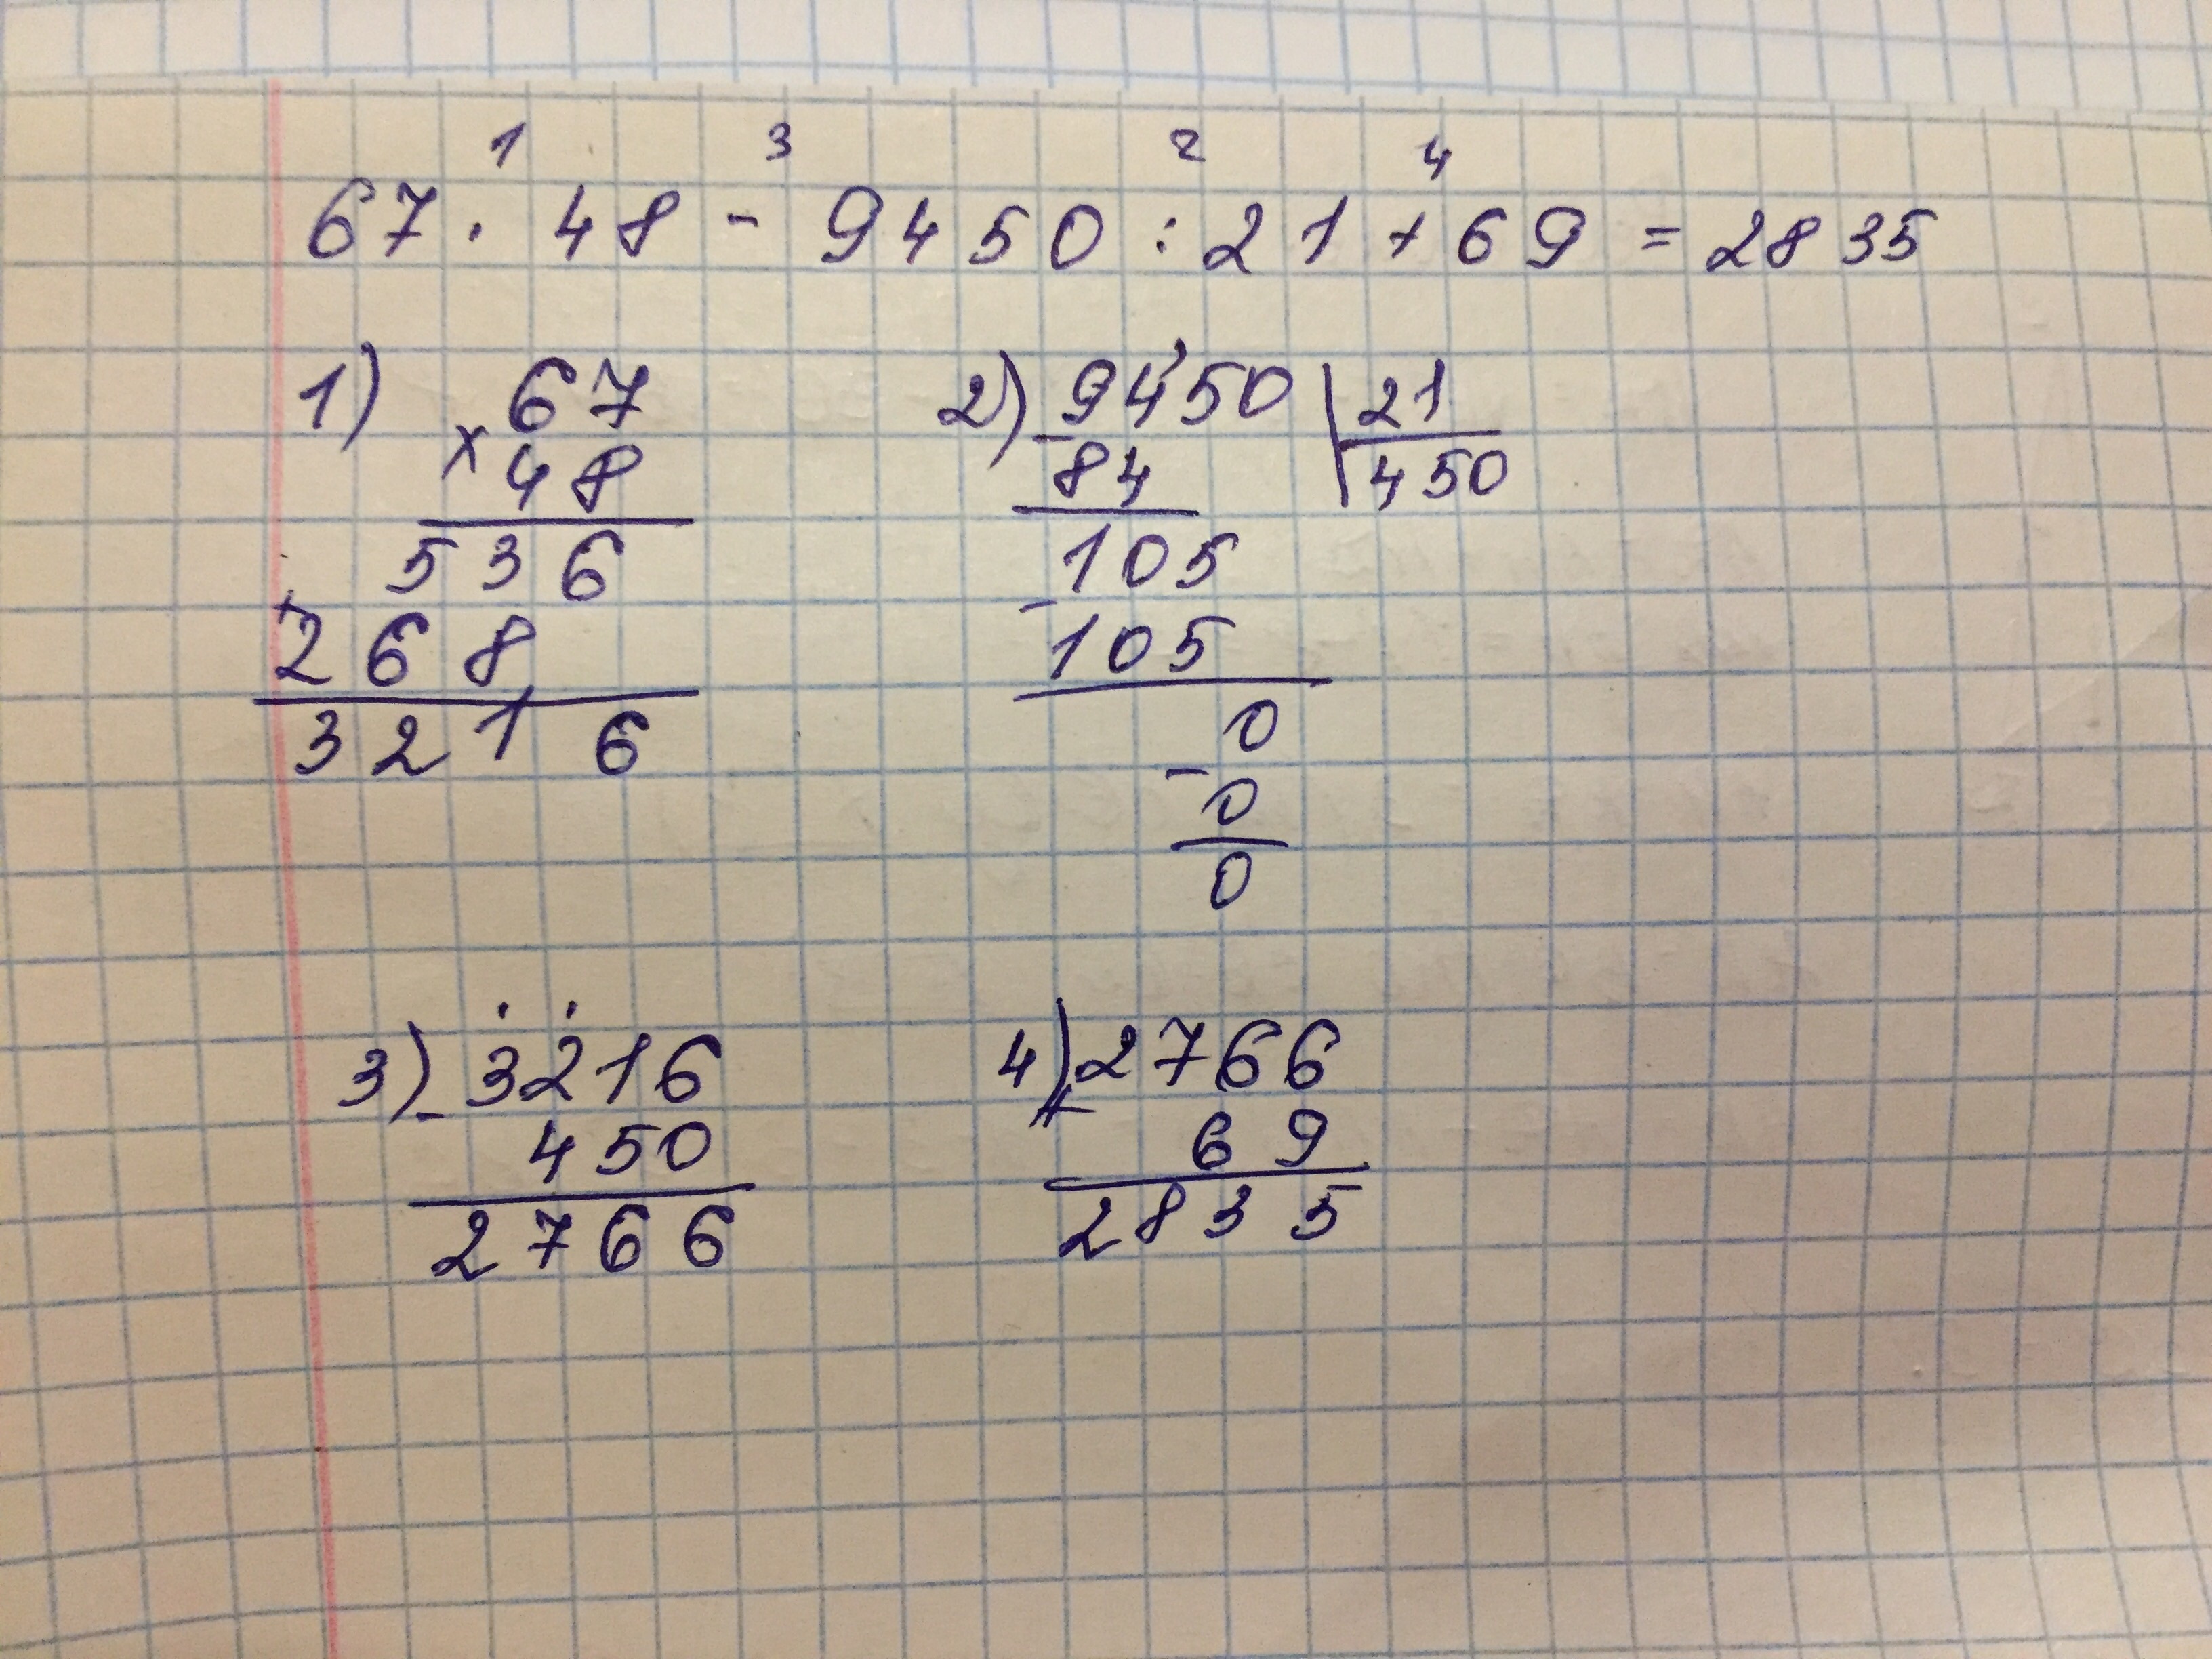 1 3 2 4
67 · 48 - 9450 : 21 + 69 = 2835
1) 67
× 48
536
+
268
3216
2) 9450 | 21
- 84 450
105
- 105
0
- 0
0
3) - 3216
450
2766
4) 2766
+ 69
2835